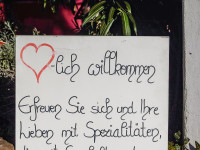 -lich willkommen
Erfreuen Sie sich und Ihre
Lieben mit Spezialitäten,